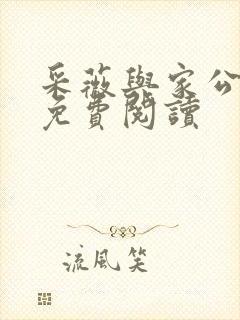 采薇與家公
免費閱讀
流風笑